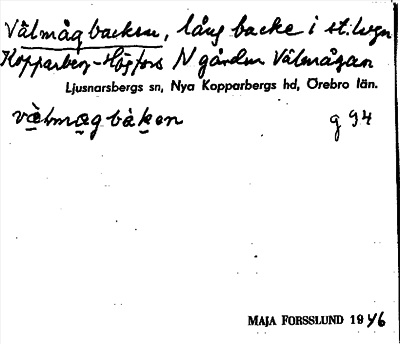 Välmågbacken, lång backe i st. lvgn
Kopparberg-Högfors N gården Välmågan
Ljusnarsbergs sn, Nya Kopparbergs hd, Örebro län.
välmagbàken g 94
MAJA FORSSLUND 1946